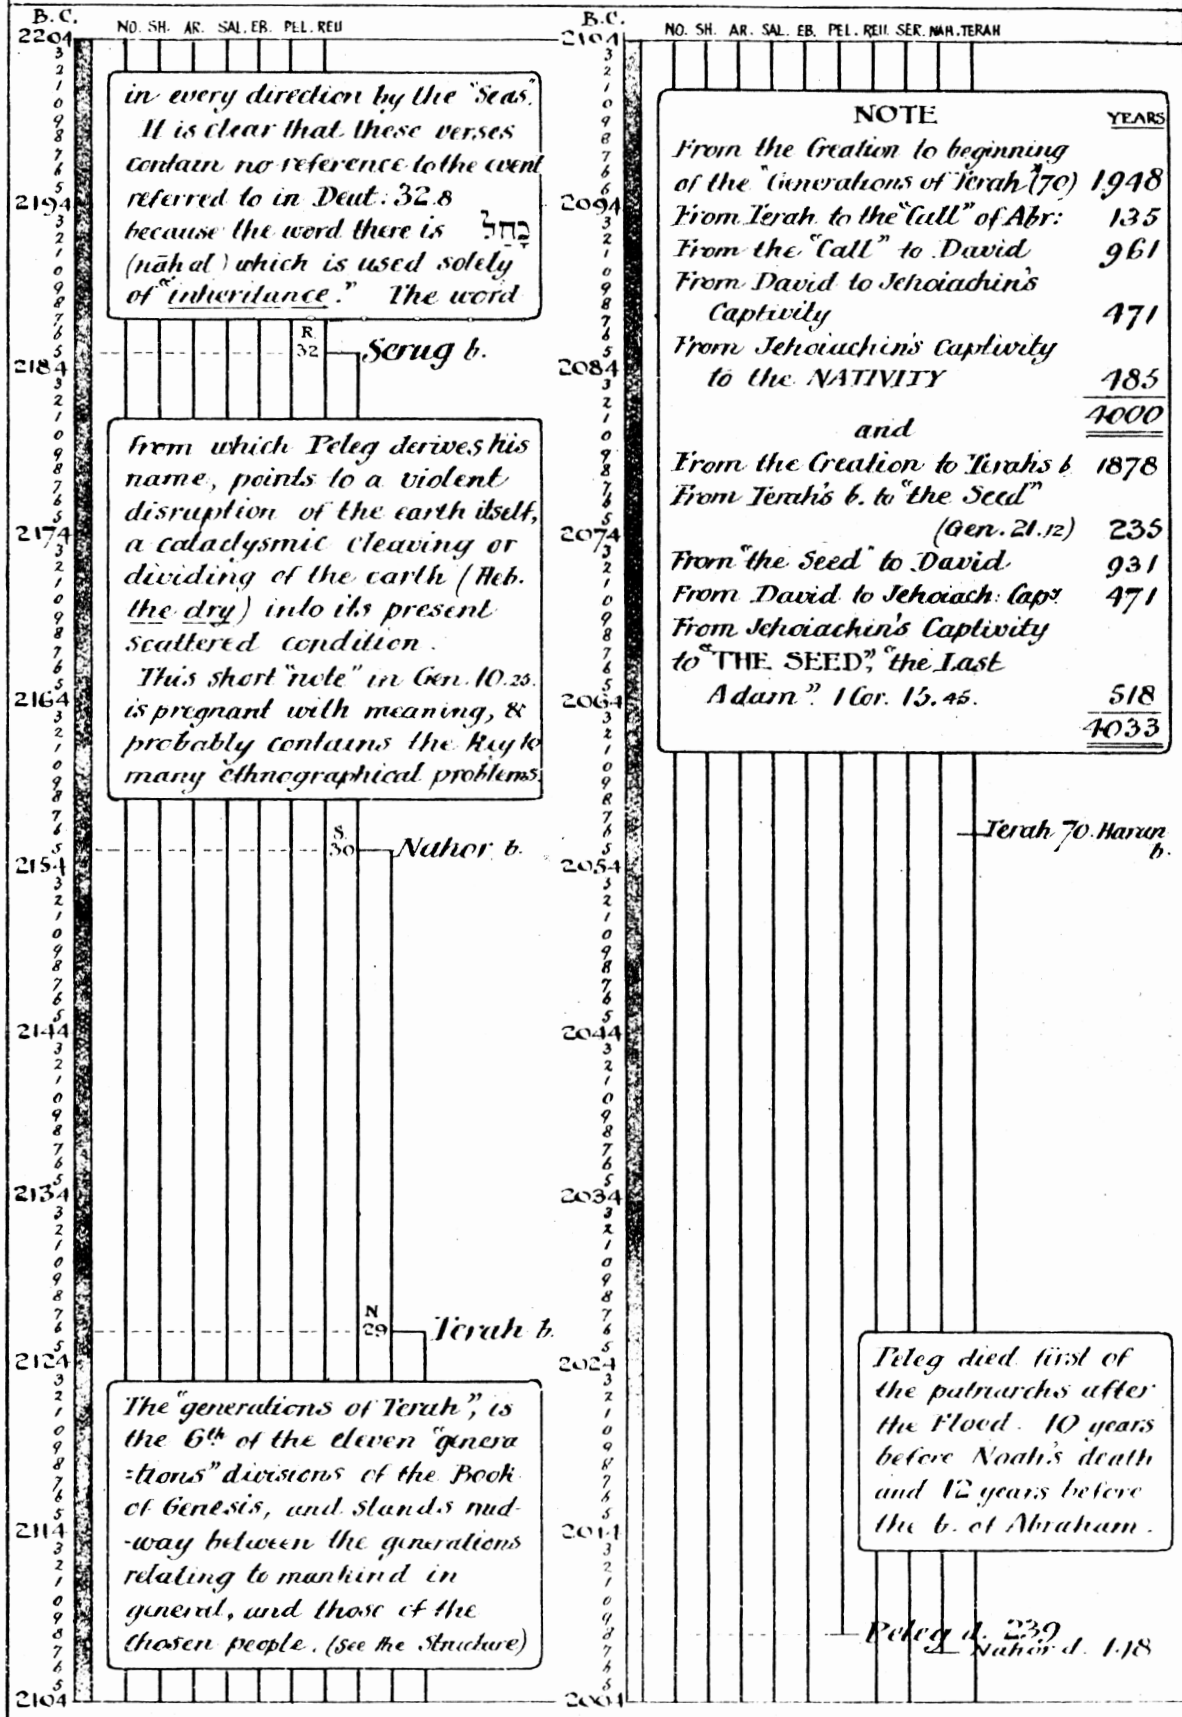 B.C.
NO. SH. AR. SAL. EB. PEL. REU
2204
3
2
1
0
9
8
7
6
5
2194
3
2
1
0
9
8
7
6
5
2184
3
2
1
0
9
8
7
6
5
2174
3
2
1
0
9
8
7
6
5
2164
3
2
1
0
9
8
7
6
5
2154
3
2
1
0
9
8
7
6
5
2144
3
2
1
0
9
8
7
6
5
2134
3
2
1
0
9
8
7
6
5
2124
3
2
1
0
9
8
7
6
5
2114
3
2
1
0
9
8
7
6
5
2104
in every direction by the "Seas".
It is clear that these verses
contain no reference to the event
referred to in Deut: 32.8
because the word there is נָחַל
(nāhal) which is used solely
of "inheritance." The word
R.
32
Serug b.
from which Peleg derives his
name, points to a violent
disruption of the earth itself,
a cataclysmic cleaving or
dividing of the earth (Heb.
the dry) into its present
scattered condition.
This short "note" in Gen. 10.25.
is pregnant with meaning, &
probably contains the key to
many ethnographical problems.
S.
30
Nahor b.
N
29
Terah b.
The "generations of Terah", is
the 6th of the eleven "genera
=tions" divisions of the Book
of Genesis, and stands mid-
-way between the generations
relating to mankind in
general, and those of the
chosen people. (See the Structure)
B.C.
NO. SH. AR. SAL. EB. PEL. REU. SER. NAH. TERAH
2104
3
2
1
0
9
8
7
6
5
2094
3
2
1
0
9
8
7
6
5
2084
3
2
1
0
9
8
7
6
5
2074
3
2
1
0
9
8
7
6
5
2064
3
2
1
0
9
8
7
6
5
2054
3
2
1
0
9
8
7
6
5
2044
3
2
1
0
9
8
7
6
5
2034
3
2
1
0
9
8
7
6
5
2024
3
2
1
0
9
8
7
6
5
2014
3
2
1
0
9
8
7
6
5
2004
NOTE YEARS
From the Creation to beginning
of the "Generations of Terah" (70) 1948
From Terah to the "Call" of Abr: 135
From the "Call" to David 961
From David to Jehoiachin's
Captivity 471
From Jehoiachin's Captivity
to the NATIVITY 485
4000
and
From the Creation to Terahs b. 1878
From Terah's b. to "the Seed"
(Gen. 21.12) 235
From "the Seed" to David 931
From David to Jehoiach: Capy. 471
From Jehoiachin's Captivity
to "THE SEED", "the Last
Adam". 1 Cor. 15.45. 518
4033
Terah 70. Haran
b.
Peleg died first of
the patriarchs after
the Flood. 10 years
before Noah's death
and 12 years before
the b. of Abraham.
Peleg d. 239
Nahor d. 148